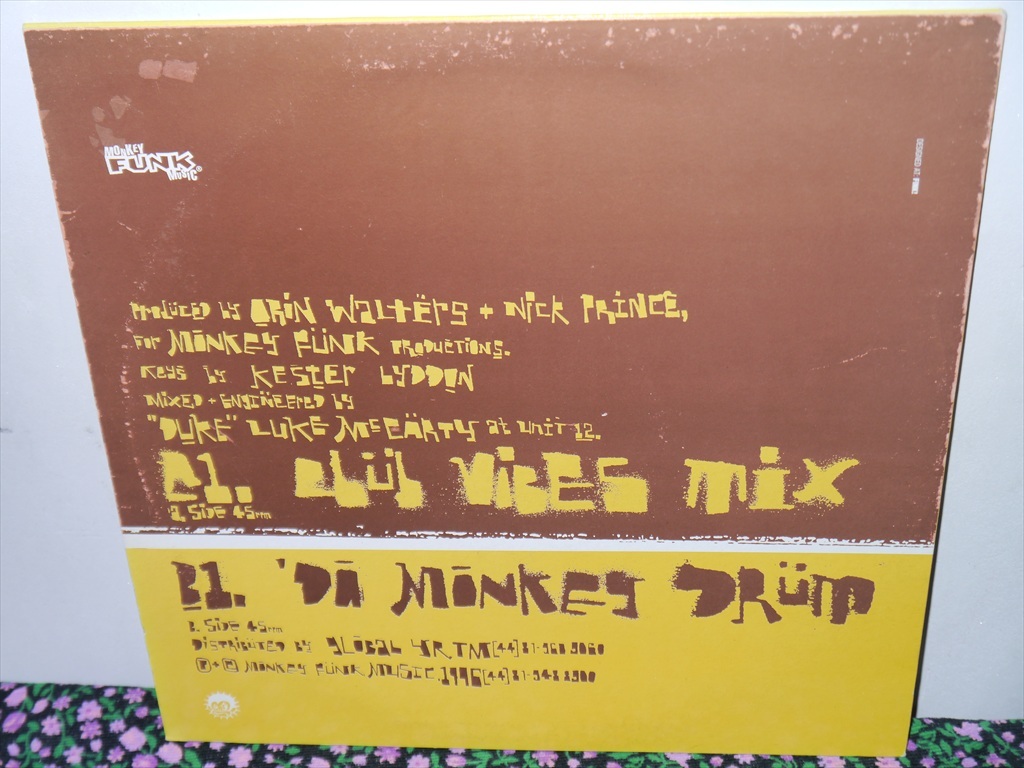 MONKEY
FUNK®
MUSIC
DESIGNED AT
PRODÜCED by ORIN WALTËRS + NICK PRINCE,
FOR MÖNKEY FÜNK PRODUCTIONS.
KEYS by KESTER LYDDON
MIXED + ENGINEERED by
"DUKE" LUKE McCÄRTY at unit 12.
A1. CLÜB VIBES MIX
A. SIDE 45rpm
B1. 'DÄ MÖNKEY DRÜM
B. SIDE 45rpm
DISTRIBUTED BY GLÖBAL
℗+© MÖNKEY FÜNK MUSIC.1996